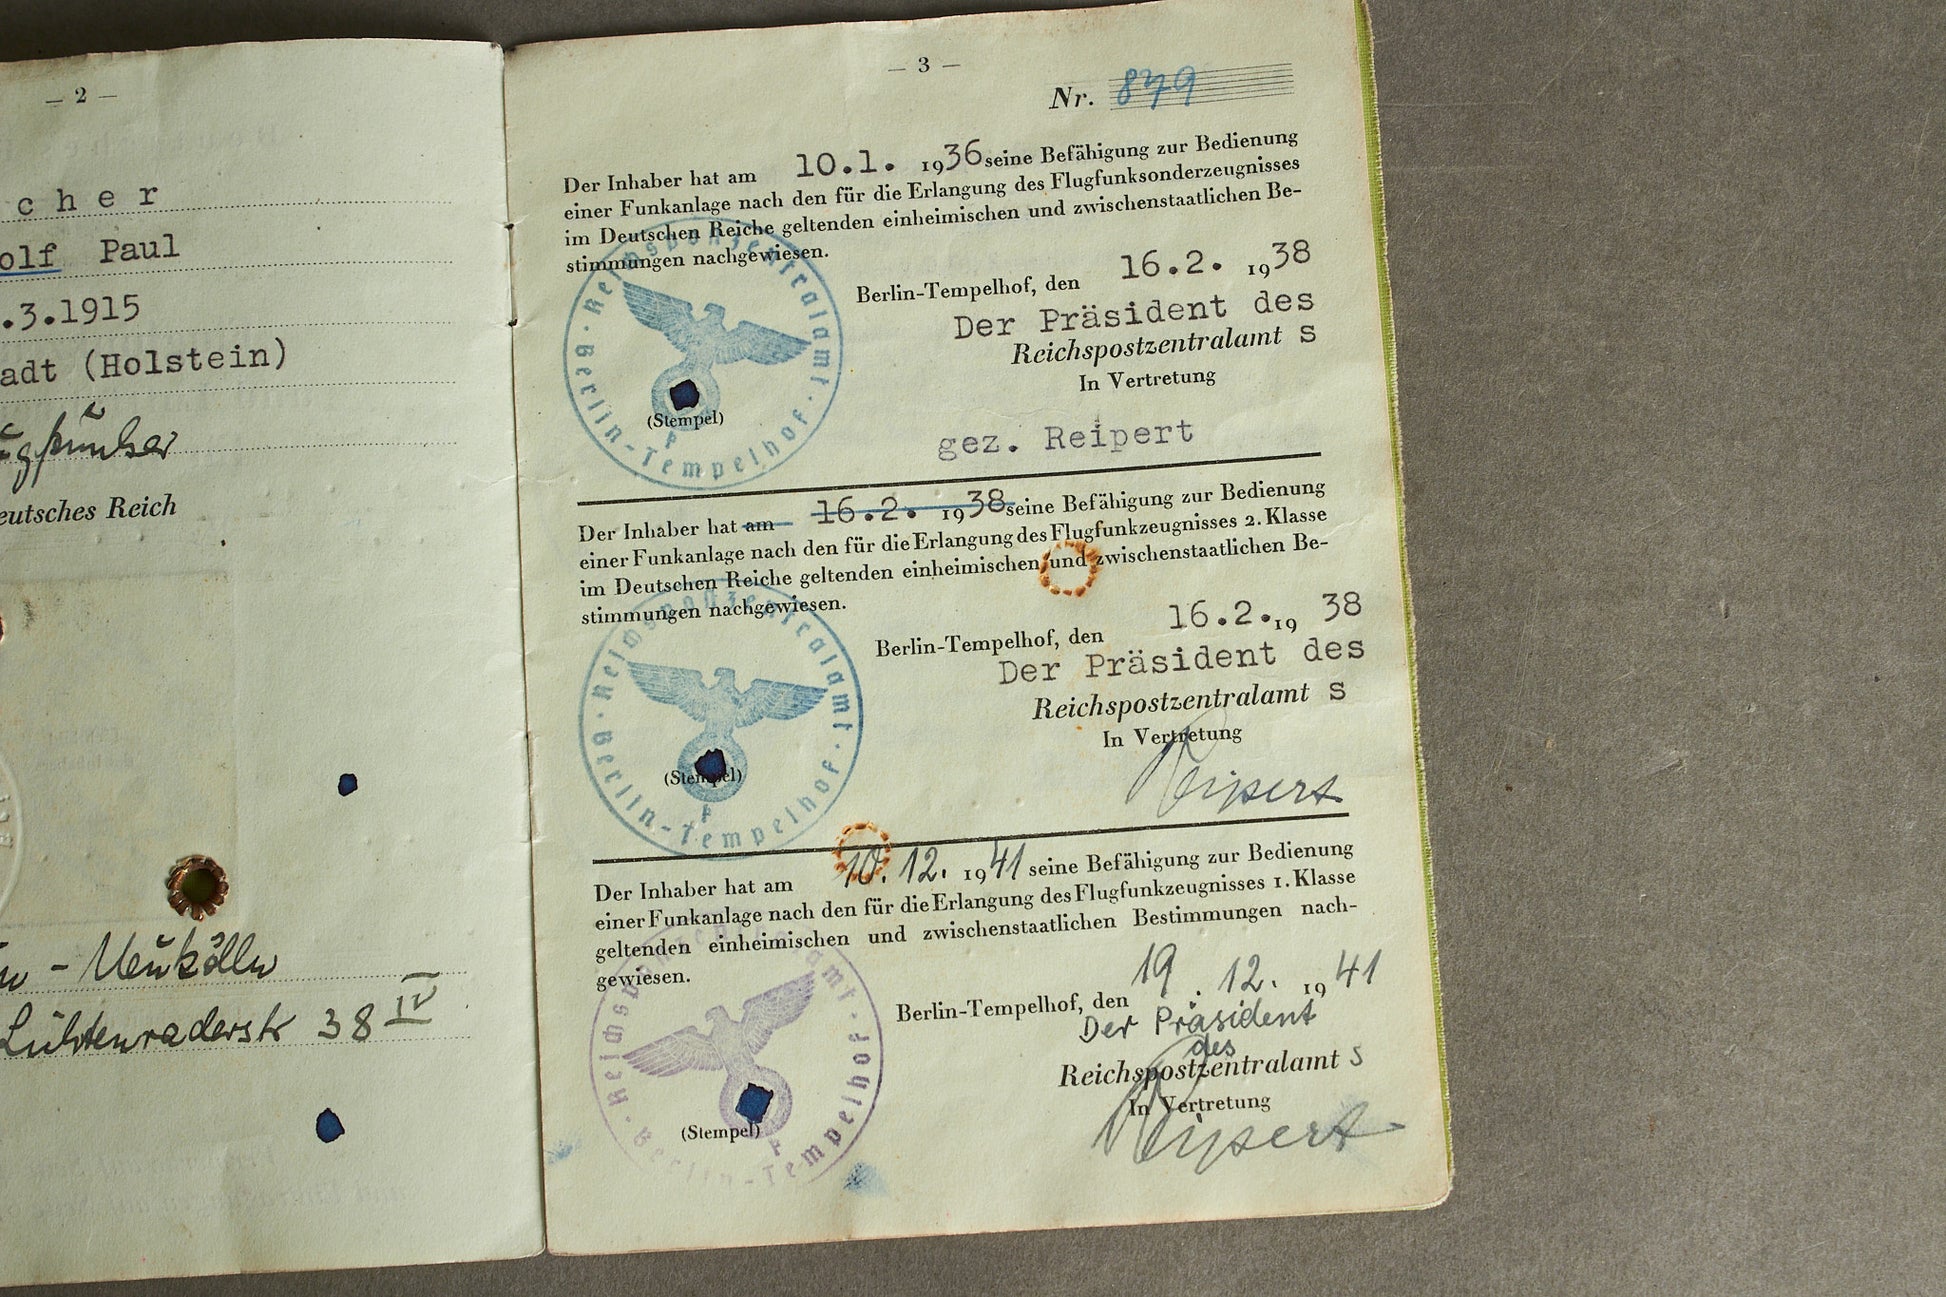 – 2 –
cher
olf Paul
.3.1915
adt (Holstein)
ugfunker
eutsches Reich
- Neukölln
Lichtenraderstr 38 IV
– 3 –
Nr. 879
Der Inhaber hat am 10.1. 1936 seine Befähigung zur Bedienung
einer Funkanlage nach den für die Erlangung des Flugfunksonderzeugnisses
im Deutschen Reiche geltenden einheimischen und zwischenstaatlichen Be-
stimmungen nachgewiesen.
Berlin-Tempelhof, den 16.2. 1938
Der Präsident des
Reichspostzentralamt s
In Vertretung
(Stempel)
Reichspostzentralamt · Berlin-Tempelhof ·
gez. Reipert
Der Inhaber hat am 16.2. 1938 seine Befähigung zur Bedienung
einer Funkanlage nach den für die Erlangung des Flugfunkzeugnisses 2. Klasse
im Deutschen Reiche geltenden einheimischen und zwischenstaatlichen Be-
stimmungen nachgewiesen.
Berlin-Tempelhof, den 16.2. 19 38
Der Präsident des
Reichspostzentralamt s
In Vertretung
(Stempel)
Reichspostzentralamt · Berlin-Tempelhof ·
Reipert
Der Inhaber hat am 10. 12. 1941 seine Befähigung zur Bedienung
einer Funkanlage nach den für die Erlangung des Flugfunkzeugnisses 1. Klasse
geltenden einheimischen und zwischenstaatlichen Bestimmungen nach-
gewiesen.
Berlin-Tempelhof, den 19. 12. 1941
Der Präsident
des
Reichspostzentralamt s
In Vertretung
(Stempel)
Reichspostzentralamt · Berlin-Tempelhof ·
Reipert